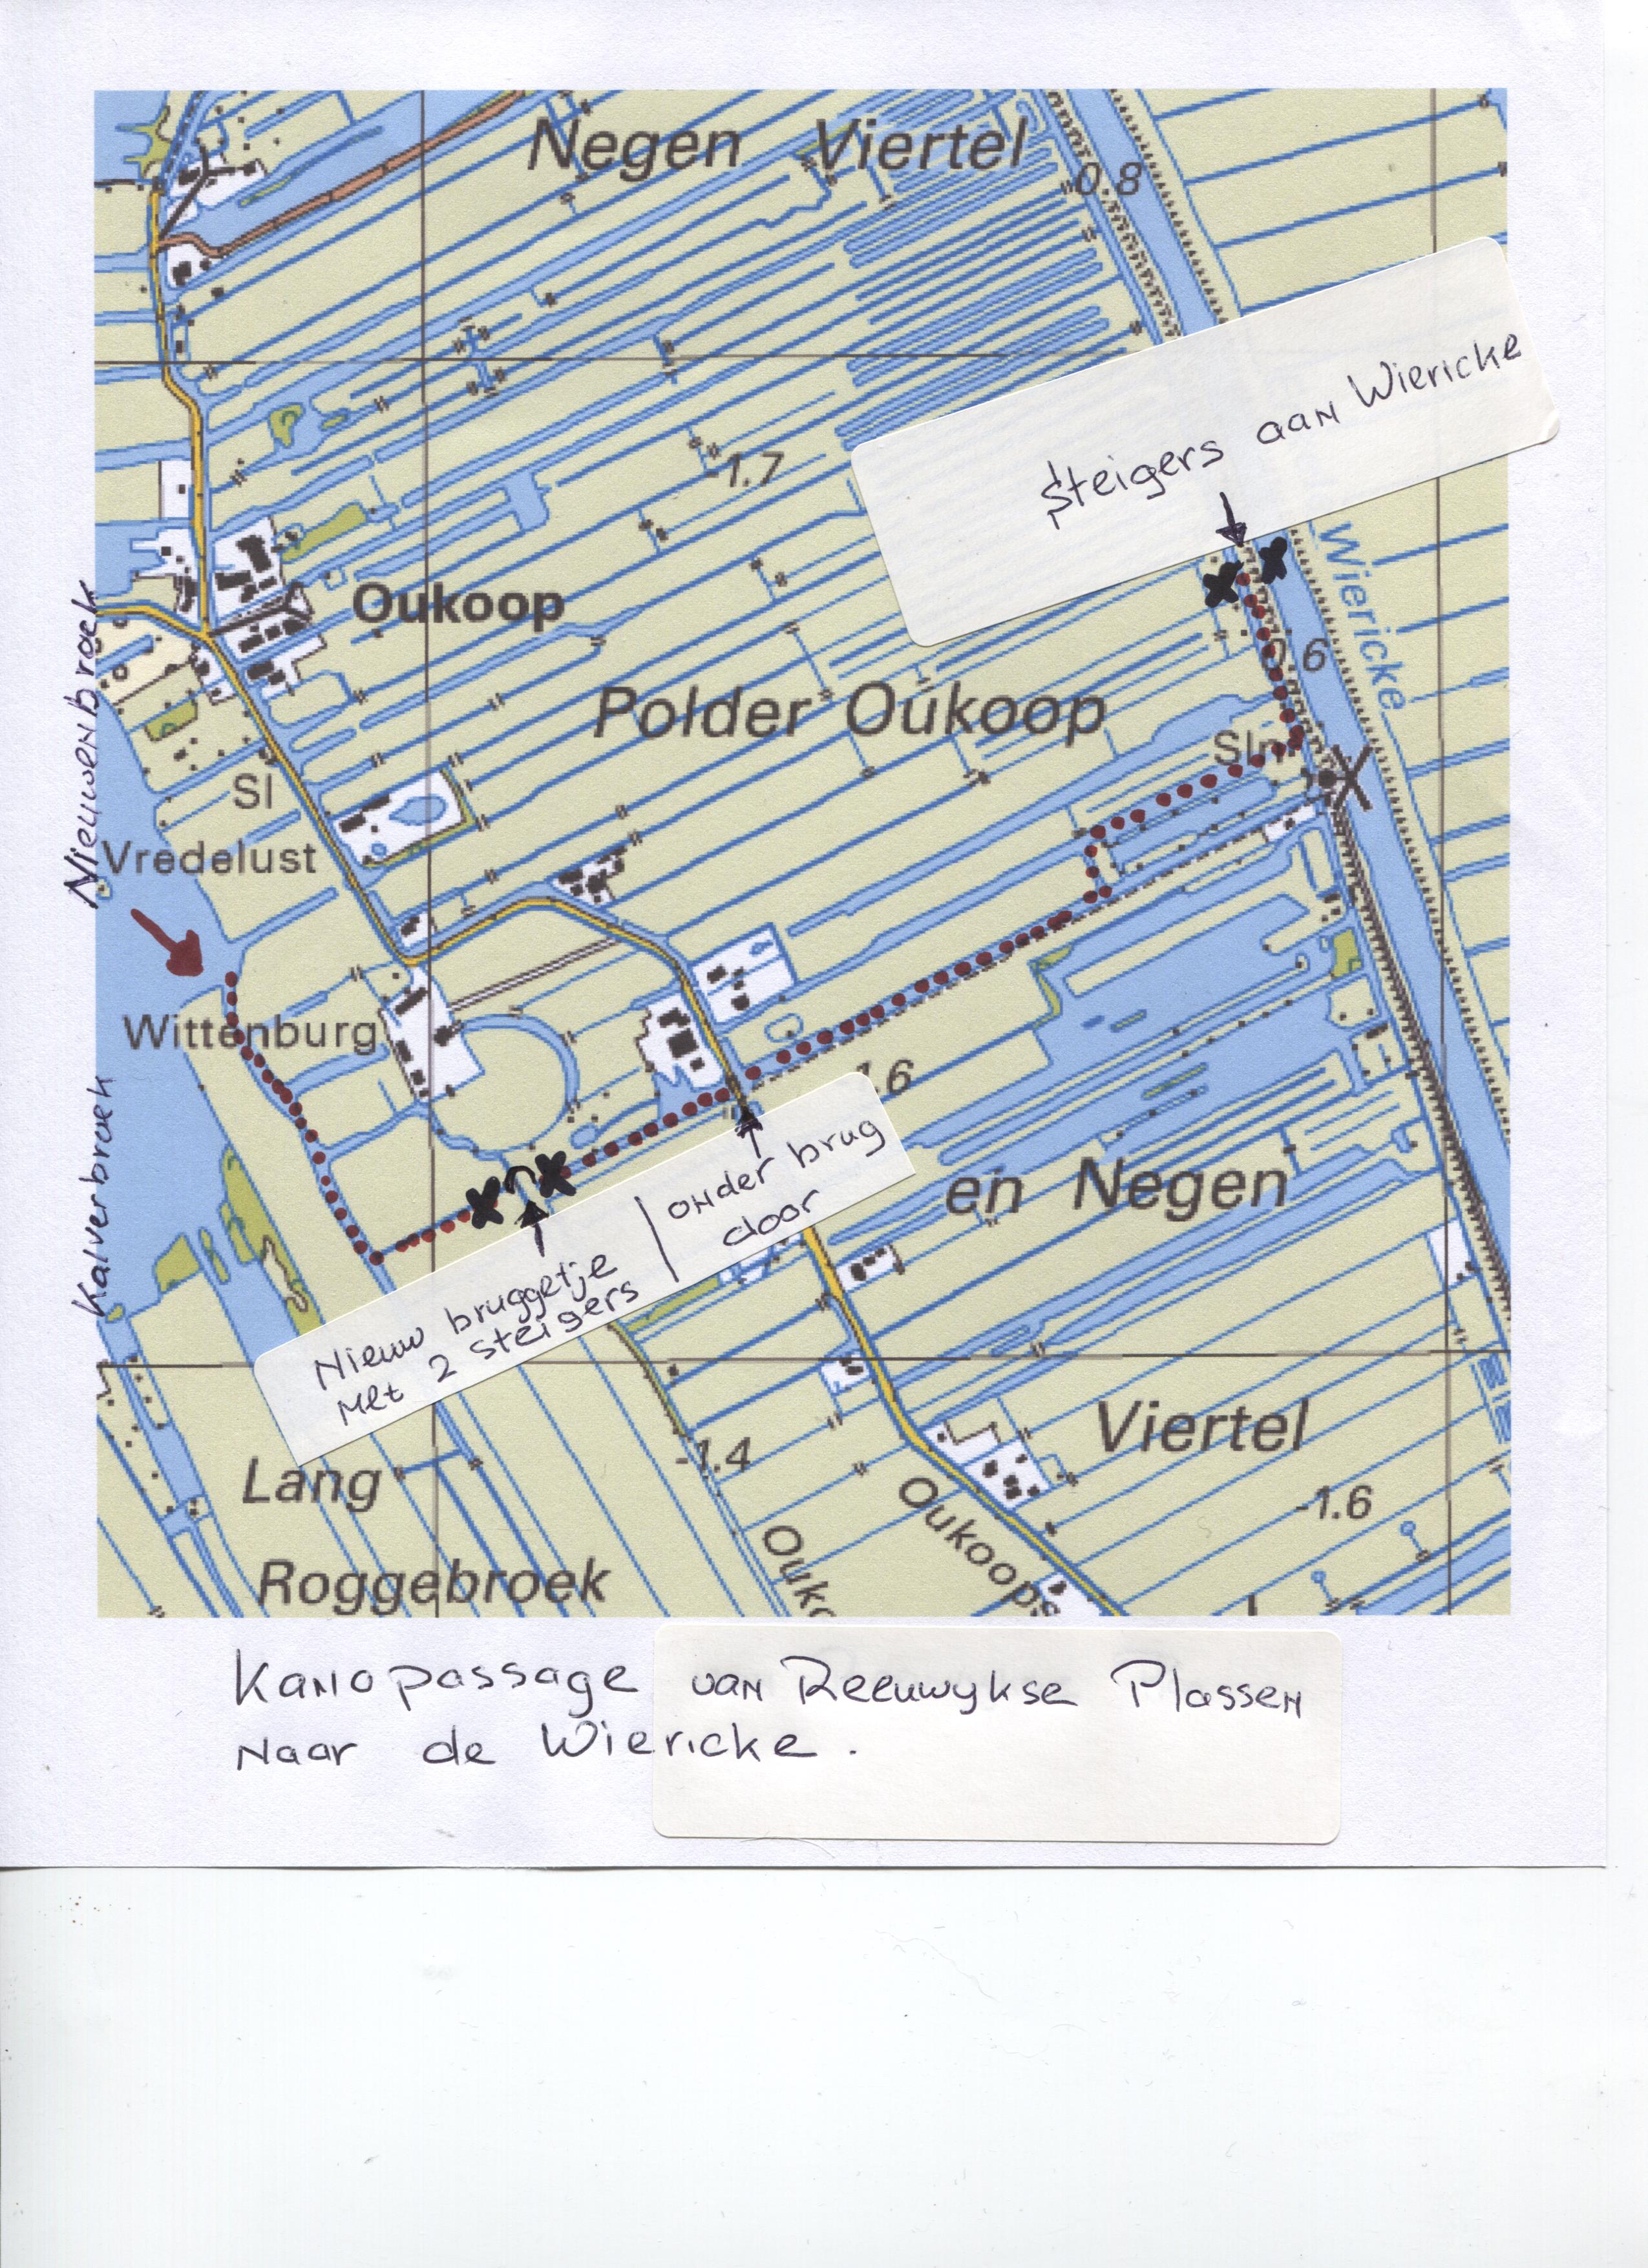 Negen Viertel
0.8
Steigers aan Wiericke
-1.7
Wiericke
Oukoop
Nieuwenbroek
Polder Oukoop
Sl
Vredelust
Wittenburg
Kalverbroek
en Negen
onder brug
door
Nieuw bruggetje
met 2 steigers
Viertel
-1.4
Lang
-1.6
Roggebroek
Oukoops
Kanopassage van Reeuwykse Plassen
naar de Wiericke.